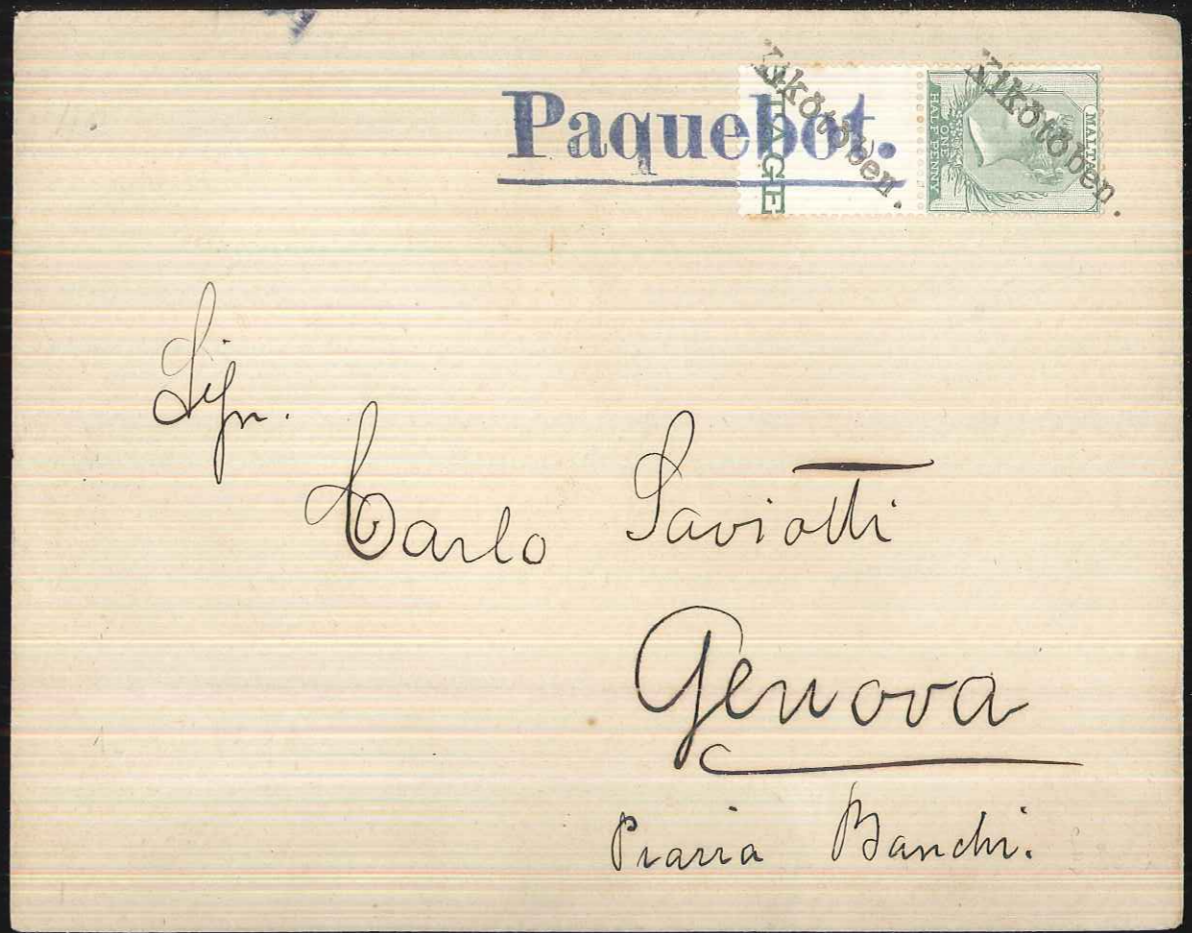 Paquebot.
TAGE
Kikötöben.
Kikötöben.
MALTA
ONE
HALF-PENNY
Sign.
Carlo Saviotti
Genova
Piazza Banchi.